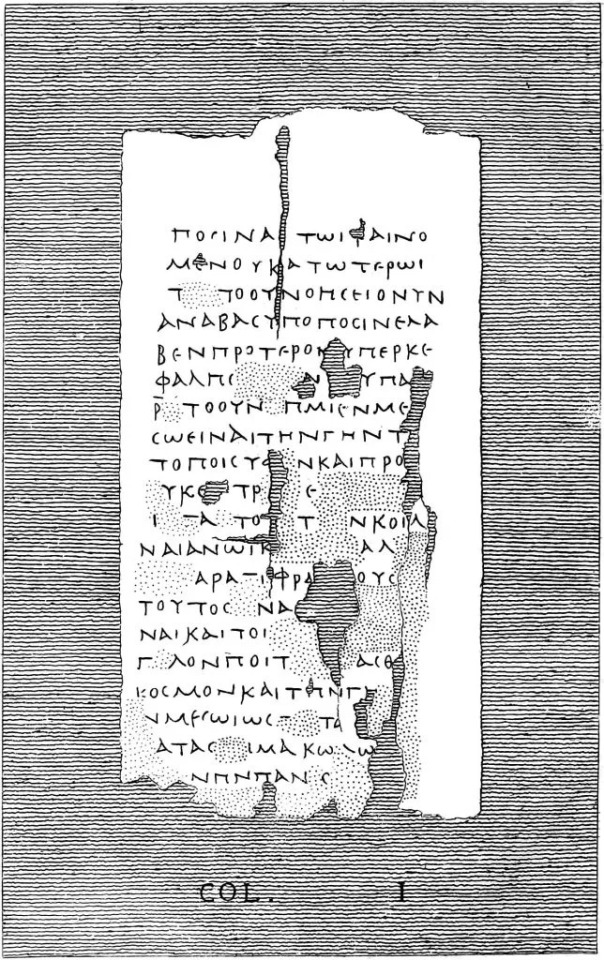 ΠΟϹΙΝΑ ΤΩΙΦΑΙΝΟ
ΜΕΝΟΥΚΑΤΩΤΕΡΩΙ
Τ ΤΟΟΥΝΟΗϹΕΙΟΝΥΝ
ΑΝΑΒΑϹΥΠΟΠΟϹΙΝΕΛΑ
ΒΕΝΠΡΟΤΕΡΟΝΥΠΕΡΚΕ
ΦΑΛΗϹ ΑΝ ΥΠΑ
Ρ ΤΟΟΥΝ ΗΜΙΕΝΜΕ
ϹΩΕΙΝΑΙΤΗΝΓΗΝΤ
ΤΟΠΟΙϹΥΦ ΝΚΑΙΠΡΟ
ΥΚΕ ΤΡ Ε
Ι ΤΑ ΤΟ Τ ΝΚΟΙΛ
ΝΑΙΑΝΩΙΚ ΑΛ
ΑΡΑ ΤΙΦΡΑ ΟΥϹ
ΤΟΥΤΟϹ ΝΑ
ΝΑΙΚΑΙΤΟΙ
Γ ΛΟΝΠΟΙΤ ΑϹΘ
ΚΟϹΜΟΝΚΑΙΤΗΝΓΗ
ΝΜΕϹΩΙΩϹ ΤΑ
ΑΤΑϹ ΙΜΑΚΩ Ω
ΝΗΝΠΑΝ Ϲ
COL. I